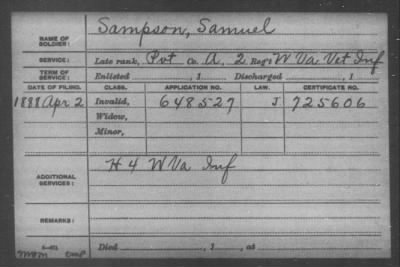 NAME OF SOLDIER: Sampson, Samuel
SERVICE: Late rank, Pvt Co. A, 2 Reg't W Va Vet Inf
TERM OF SERVICE: Enlisted , 1 Discharged , 1
DATE OF FILING. CLASS. APPLICATION NO. LAW. CERTIFICATE NO.
1888 Apr 2 Invalid, 648527 J 725606
Widow,
Minor,
ADDITIONAL SERVICES: H 4 W Va Inf
REMARKS:
Died , 1 , at